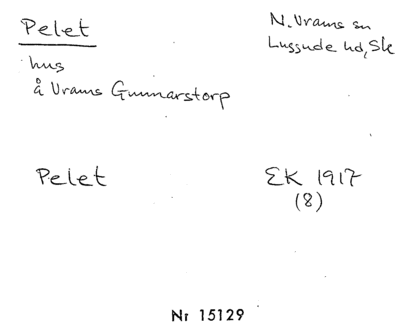 Pelet
N. Vrams sn
Luggude hd, Sk
hus
å Vrams Gunnarstorp
Pelet
EK 1917
(8)
Nr 15129